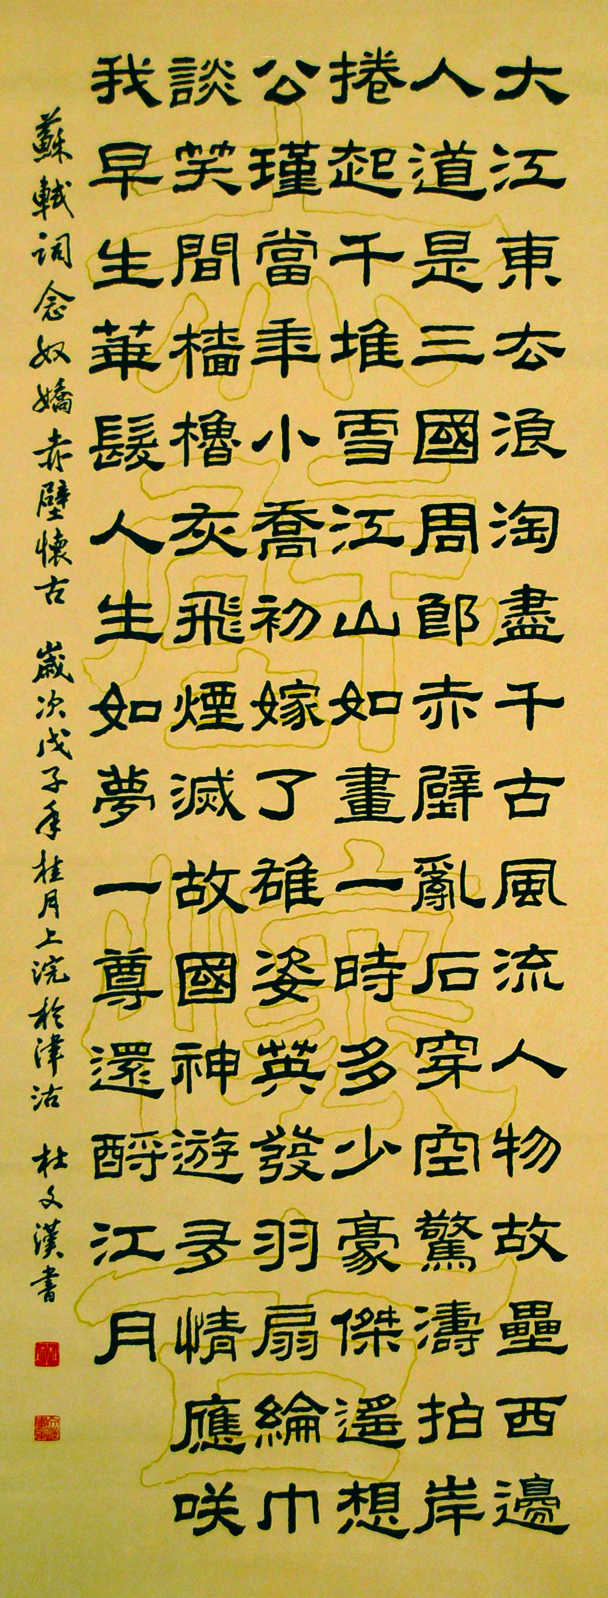 大江東去浪淘盡千古風流人物故壘西邊
人道是三國周郎赤壁亂石穿空驚濤拍岸
捲起千堆雪江山如畫一時多少豪傑遙想
公瑾當年小喬初嫁了雄姿英發羽扇綸巾
談笑間檣櫓灰飛煙滅故國神游多情應咲
我早生華髮人生如夢一尊還酹江月
蘇軾詞念奴嬌赤壁懷古 歲次戊子年桂月上浣於津沽 杜文漢書
赤壁懷古